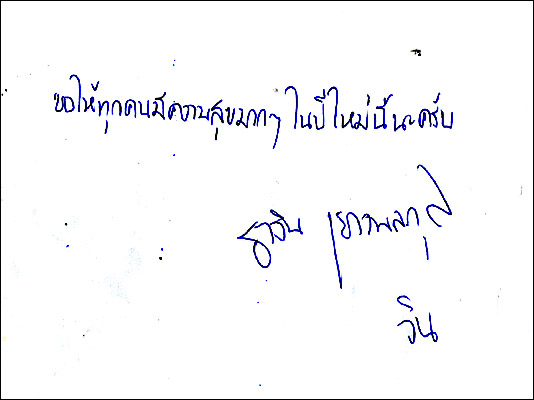 ขอให้ทุกคนมีความสุขมากๆ ในปีใหม่นี้นะครับ
ธาวิน เยาวพลกุล
วิน